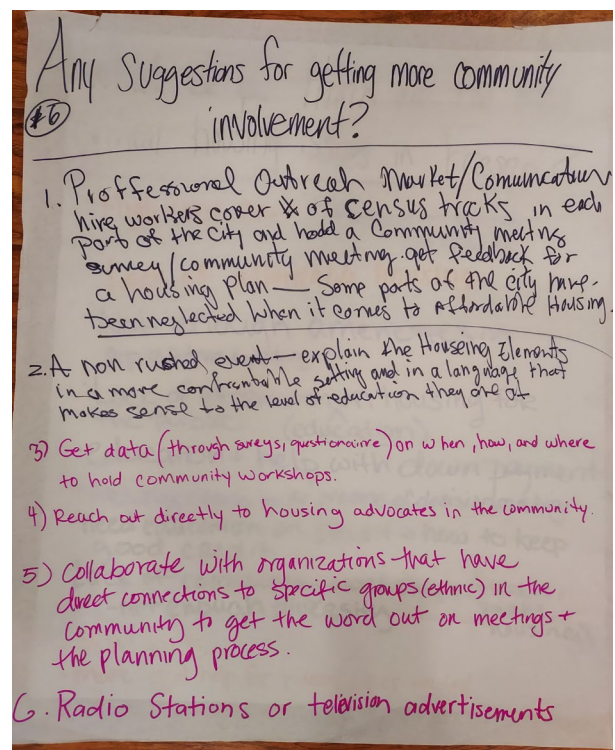 Any Suggestions for getting more community
#6
involvement?
1. Proffessional Outreah Market/Comumcation
hire workers cover of census tracks in each
part of the city and hodd a Community meeting
survey/community meeting. get feedback for
a housing plan — Some parts of the city have
been neglected when it comes to Affordable Housing.
2. A non rushed event — explain the Houseing Elements
in a more comfrontable setting and in a language that
makes sense to the level of education they are at
3) Get data (through sureys, qustionairre) on when, how, and where
to hold community workshops.
4) Reach out directly to housing advocates in the community.
5) Collaborate with organizations that have
direct connections to specific groups (ethnic) in the
community to get the word out on meetings +
the planning process.
6. Radio Stations or television advertisements